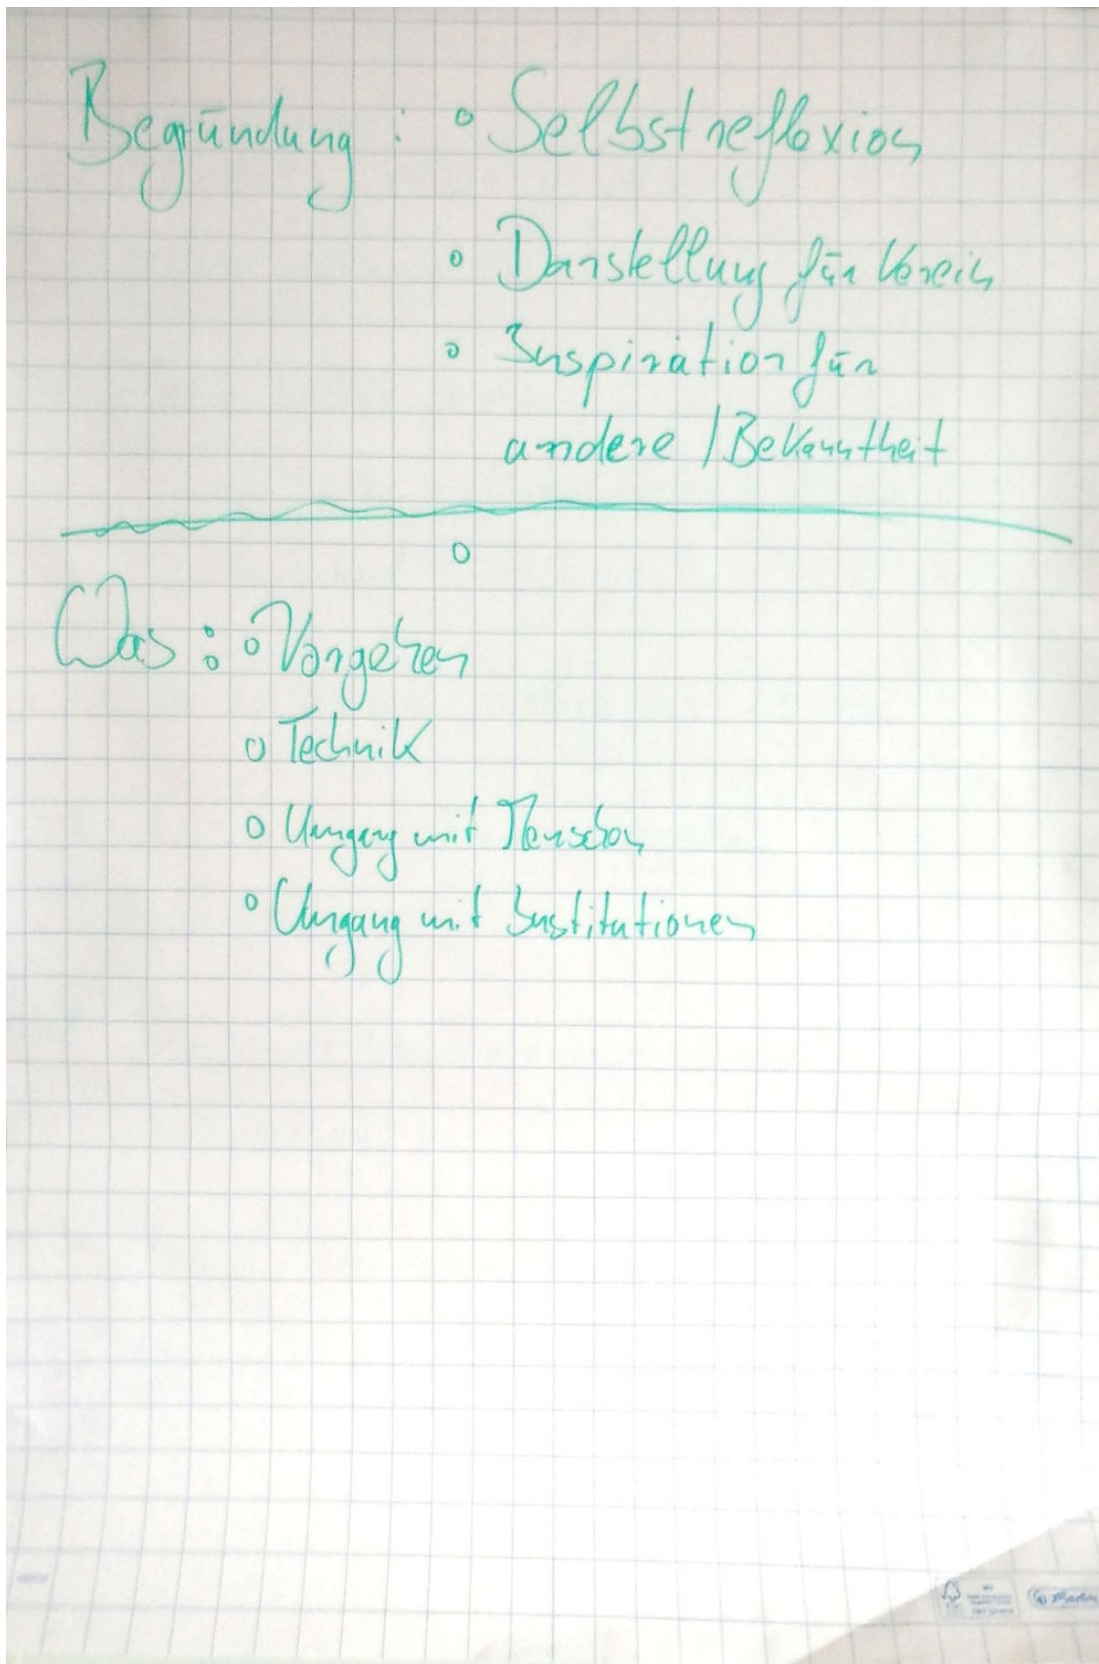 Begründung : o Selbstreflexion
o Darstellung für Verein
o Inspiration für
andere / Bekanntheit
o
Was : o Vorgehen
o Technik
o Umgang mit Menschen
o Umgang mit Institutionen